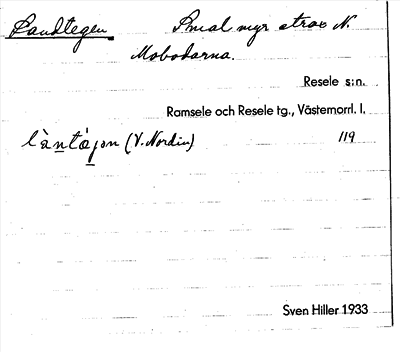 Landtegen Smal myr strax N.
Mobodarna.
Resele s:n.
Ramsele och Resele tg., Västernorrl. l.
làntájən (V. Nordin) 119
Sven Hiller 1933